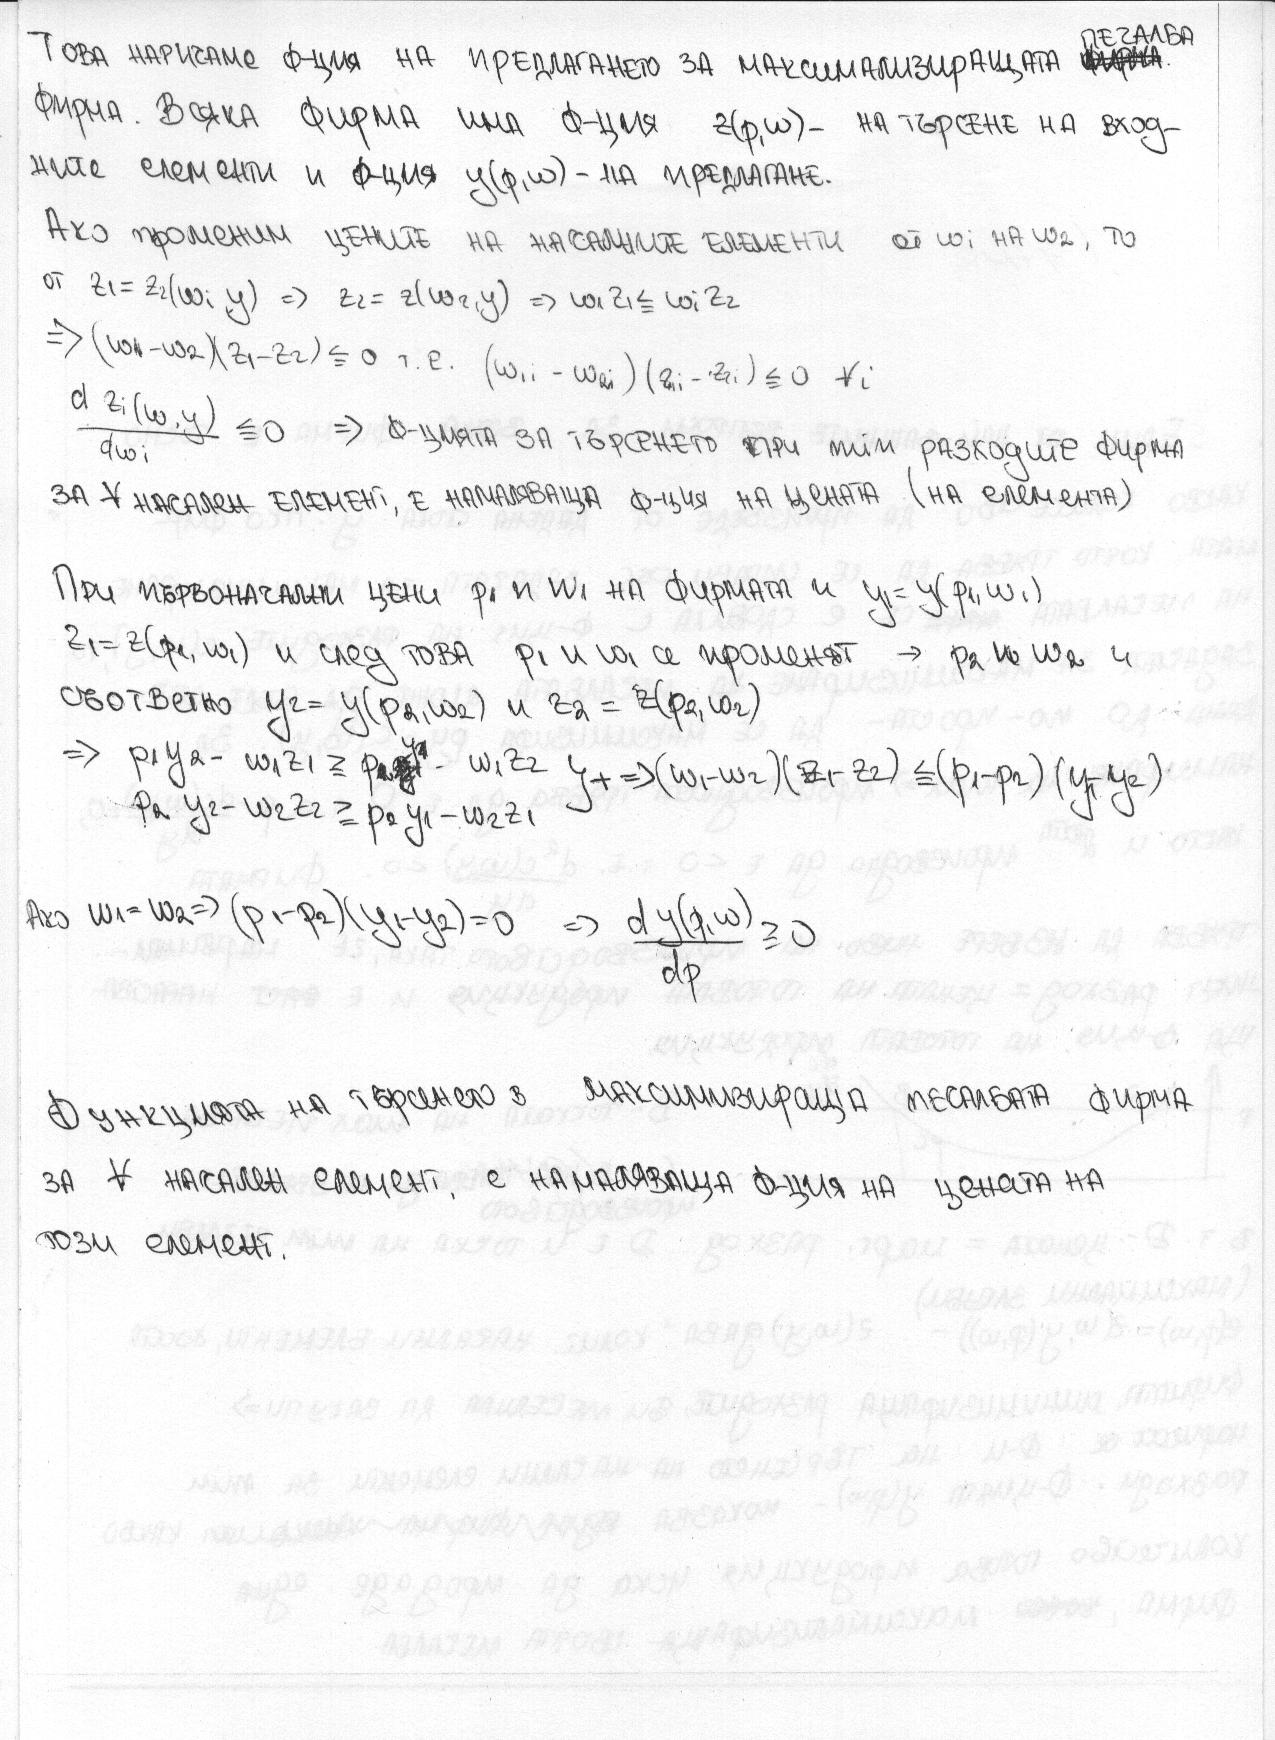 ПЕЧАЛБА
Това наричаме ф-ция на предлагането за максимализиращата
фирма. Всяка фирма има ф-ция z(p,w) - на търсене на вход-
ните елементи и ф-ция y(p,w) - на предлагане.
Ако променим цените на началните елементи от wi на w2, то
от z1 = z2(wi,y) => z2 = z(w2,y) => w1z1 ≤ w1z2
=> (w1-w2)(z1-z2) ≤ 0 т.е. (w1i - w2i)(z1i - z2i) ≤ 0 ∀i
d zi(w,y)/dwi ≤ 0 => ф-цията за търсенето при мин разходите фирма
за ∀ начален елемент, е намаляваща ф-ция на цената (на елемента)
При първоначални цени p1 и w1 на фирмата и y1 = y(p1,w1)
z1 = z(p1,w1) и след това p1 и w1 се променят → p2 и w2 и
съответно y2 = y(p2,w2) и z2 = z(p2,w2)
=> p1y2 - w1z1 ≥ y2 - w1z2 } + => (w1-w2)(z1-z2) ≤ (p1-p2)(y1-y2)
p2y2 - w2z2 ≥ p2y1 - w2z1
Ако w1=w2 => (p1-p2)(y1-y2)=0 => dy(p,w)/dp ≥ 0
Функцията на търсенето в максимизираща печалбата фирма
за ∀ начален елемент, е намаляваща ф-ция на цената на
този елемент.